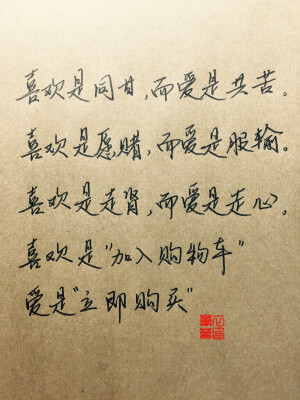 喜欢是同甘,而爱是共苦。
喜欢是愿赌,而爱是服输。
喜欢是走肾,而爱是走心。
喜欢是"加入购物车"
爱是"立即购买"